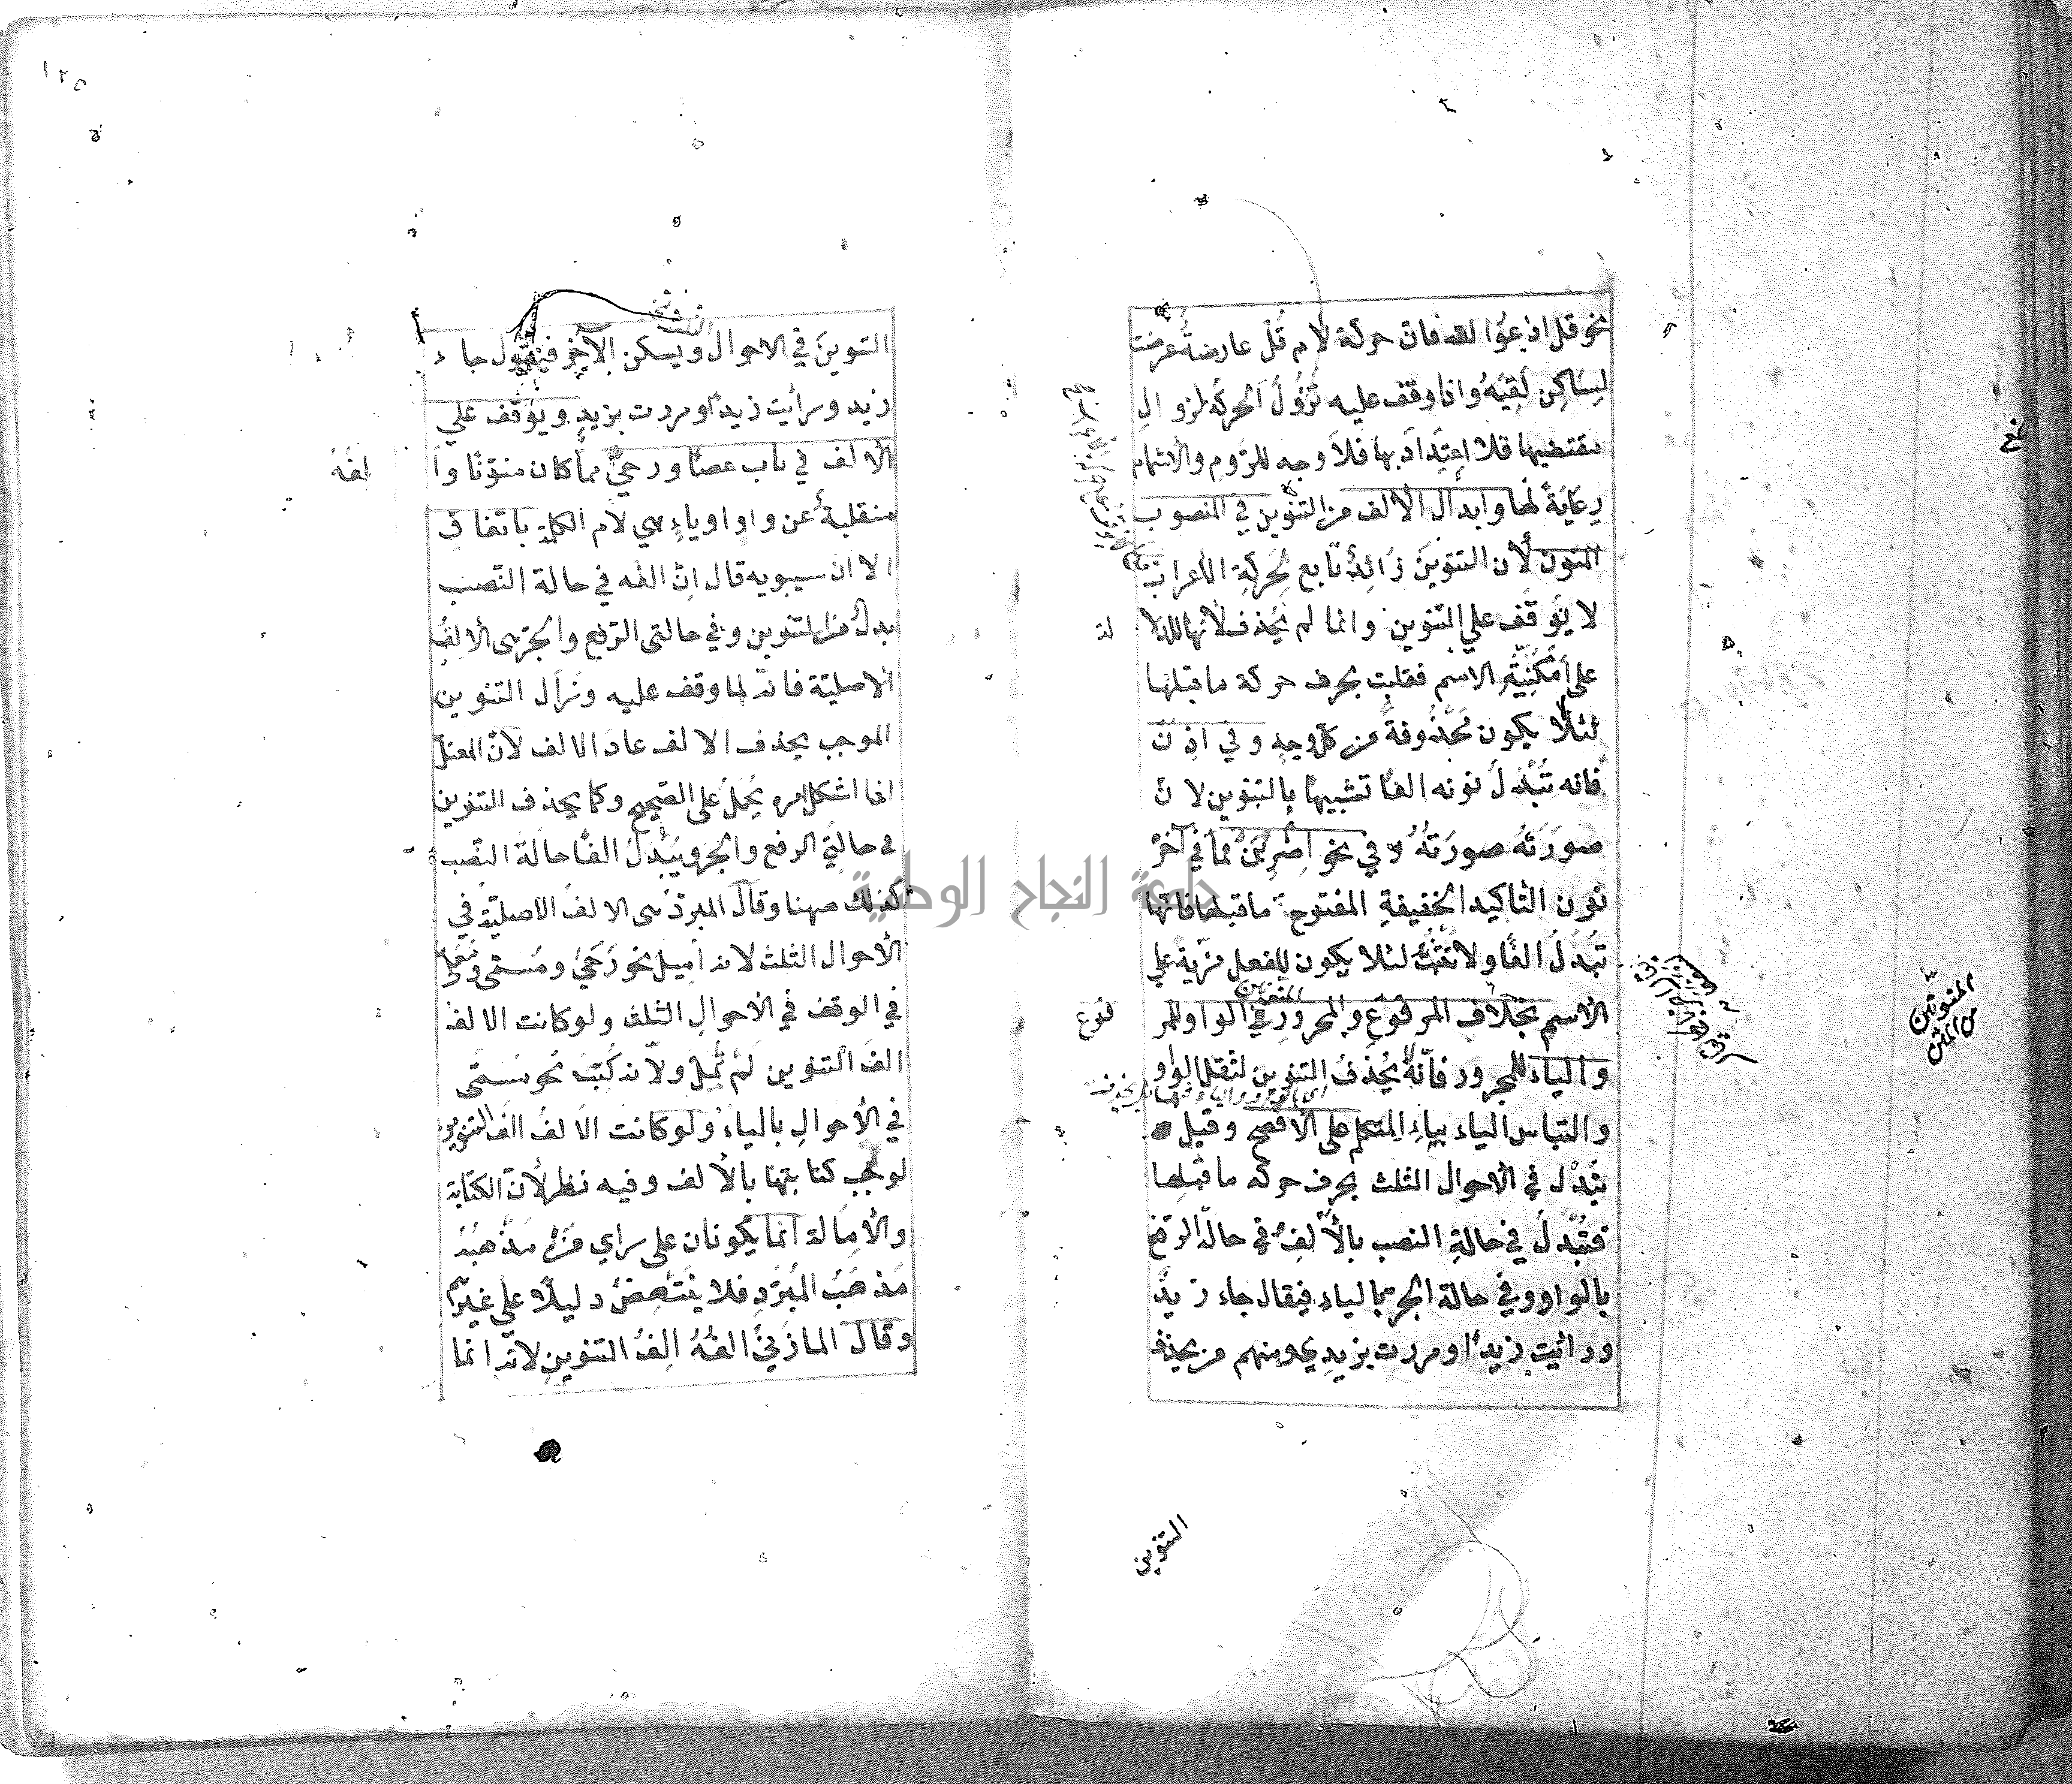 نحو قل ادعوا الله فان حركة لام قُلْ عارضةٌ عرضت
لِسَاكِن لَقِيَهُ واذا وقف عليه تزُولُ الحركة لزوال
مقتضيها فلا اِعتِدَادَ بها فلا وجه للرَّومِ والاشمام
رِعَايَةً لها وابدال الالف من التنوين في المنصوب
المنون لان التنوين زائدٌ تابع لحركة الاعراب
لا يُوقف على التنوين وانما لم يحذف لانها للدلا لة
على اَمْكَنِيَّةِ الاسم فقلبت بحرف حركة ما قبلها
لئلا يكون محذوفةً من كل وجهٍ وفي اذن
فانه تُبْدَلُ نونه الفًا تشبيهًا بالتنوين لان
صُورَتَهُ صورَتُهُ وفي نحو اِضْرِبَنْ مما في آخره
نون التاكيد الخفيفةِ المفتوح ما قبلها فانها
تُبْدَلُ الفًا ولا تحذف لئلا يكون للفعل مزيّة على
الاسم بخلاف المرفوع والمجرور في الواو للمر فوع
المنونين
والياء للمجرور فانّه يُحْذَفُ التنوين لثقل الواو
والتباس الياء بياءِ المتكلم على الافصح وقيل
تُبْدَل في الاحوال الثلث بحرف حركة ما قبلها
فتُبْدَلُ في حالةِ النصب بالالفِ في حالة الرفع
بالواو وفي حالة الجر بالياءِ فيقال جاء زيدُ
ورأيت زيدًا ومررت بزيدي ومنهم من يحذف
التنوين
المنونين
من المتن
١٢٥
التنوين في الاحوال الثلث ويسكن الآخر فيقول جاء
زيد ورأيت زيدْ ومررت بزيد ويُوقف على
الالف في باب عصًا ورحىً مما كان منوّنًا وا لفهُ
منقلبة عن واو او ياءٍ هي لام الكلمة باتفاق
الا ان سيبويه قال اِنّ الفه في حالة النّصب
بدل من التنوين وفي حالتي الرّفع والجرّ هى الالفُ
الاصليّة فانه لما وقف عليه وزال التنوين
الموجب بحذف الالف عاد الالف لانّ المعتلّ
اذا اشكل امره يُحمل على الصحيح وكما يحذف التنوين
في حالتي الرفع والجر ويُبْدَلُ الفًا حالة النّصب
كذلك ههنا وقال المبرد هى الالف الاصليّة في
الاحوال الثلث لانه اُميل نحو رَحىً ومُسَمّى ومُعَلًّى
في الوقف في الاحوالِ الثلث ولو كانت الالف
الفَ التنوين لم تُمِلْ ولانه كُتِبَ نحو مُسَمّى
في الاحوالِ بالياء ولو كانت الالفُ الفَ التنوين
لوجب كتابتها بالالف وفيه نظر لانّ الكتابة
والاِمالة انما يكونان على راي مَنْ مَذْهَبُهُ
مَذهَبُ المُبرّدِ فلا ينتهضُ دليلًا على غيره
وقال المازنيُّ الفُهُ اَلِفُ التنوينِ لانّه انما
جامعة النجاح الوطنية